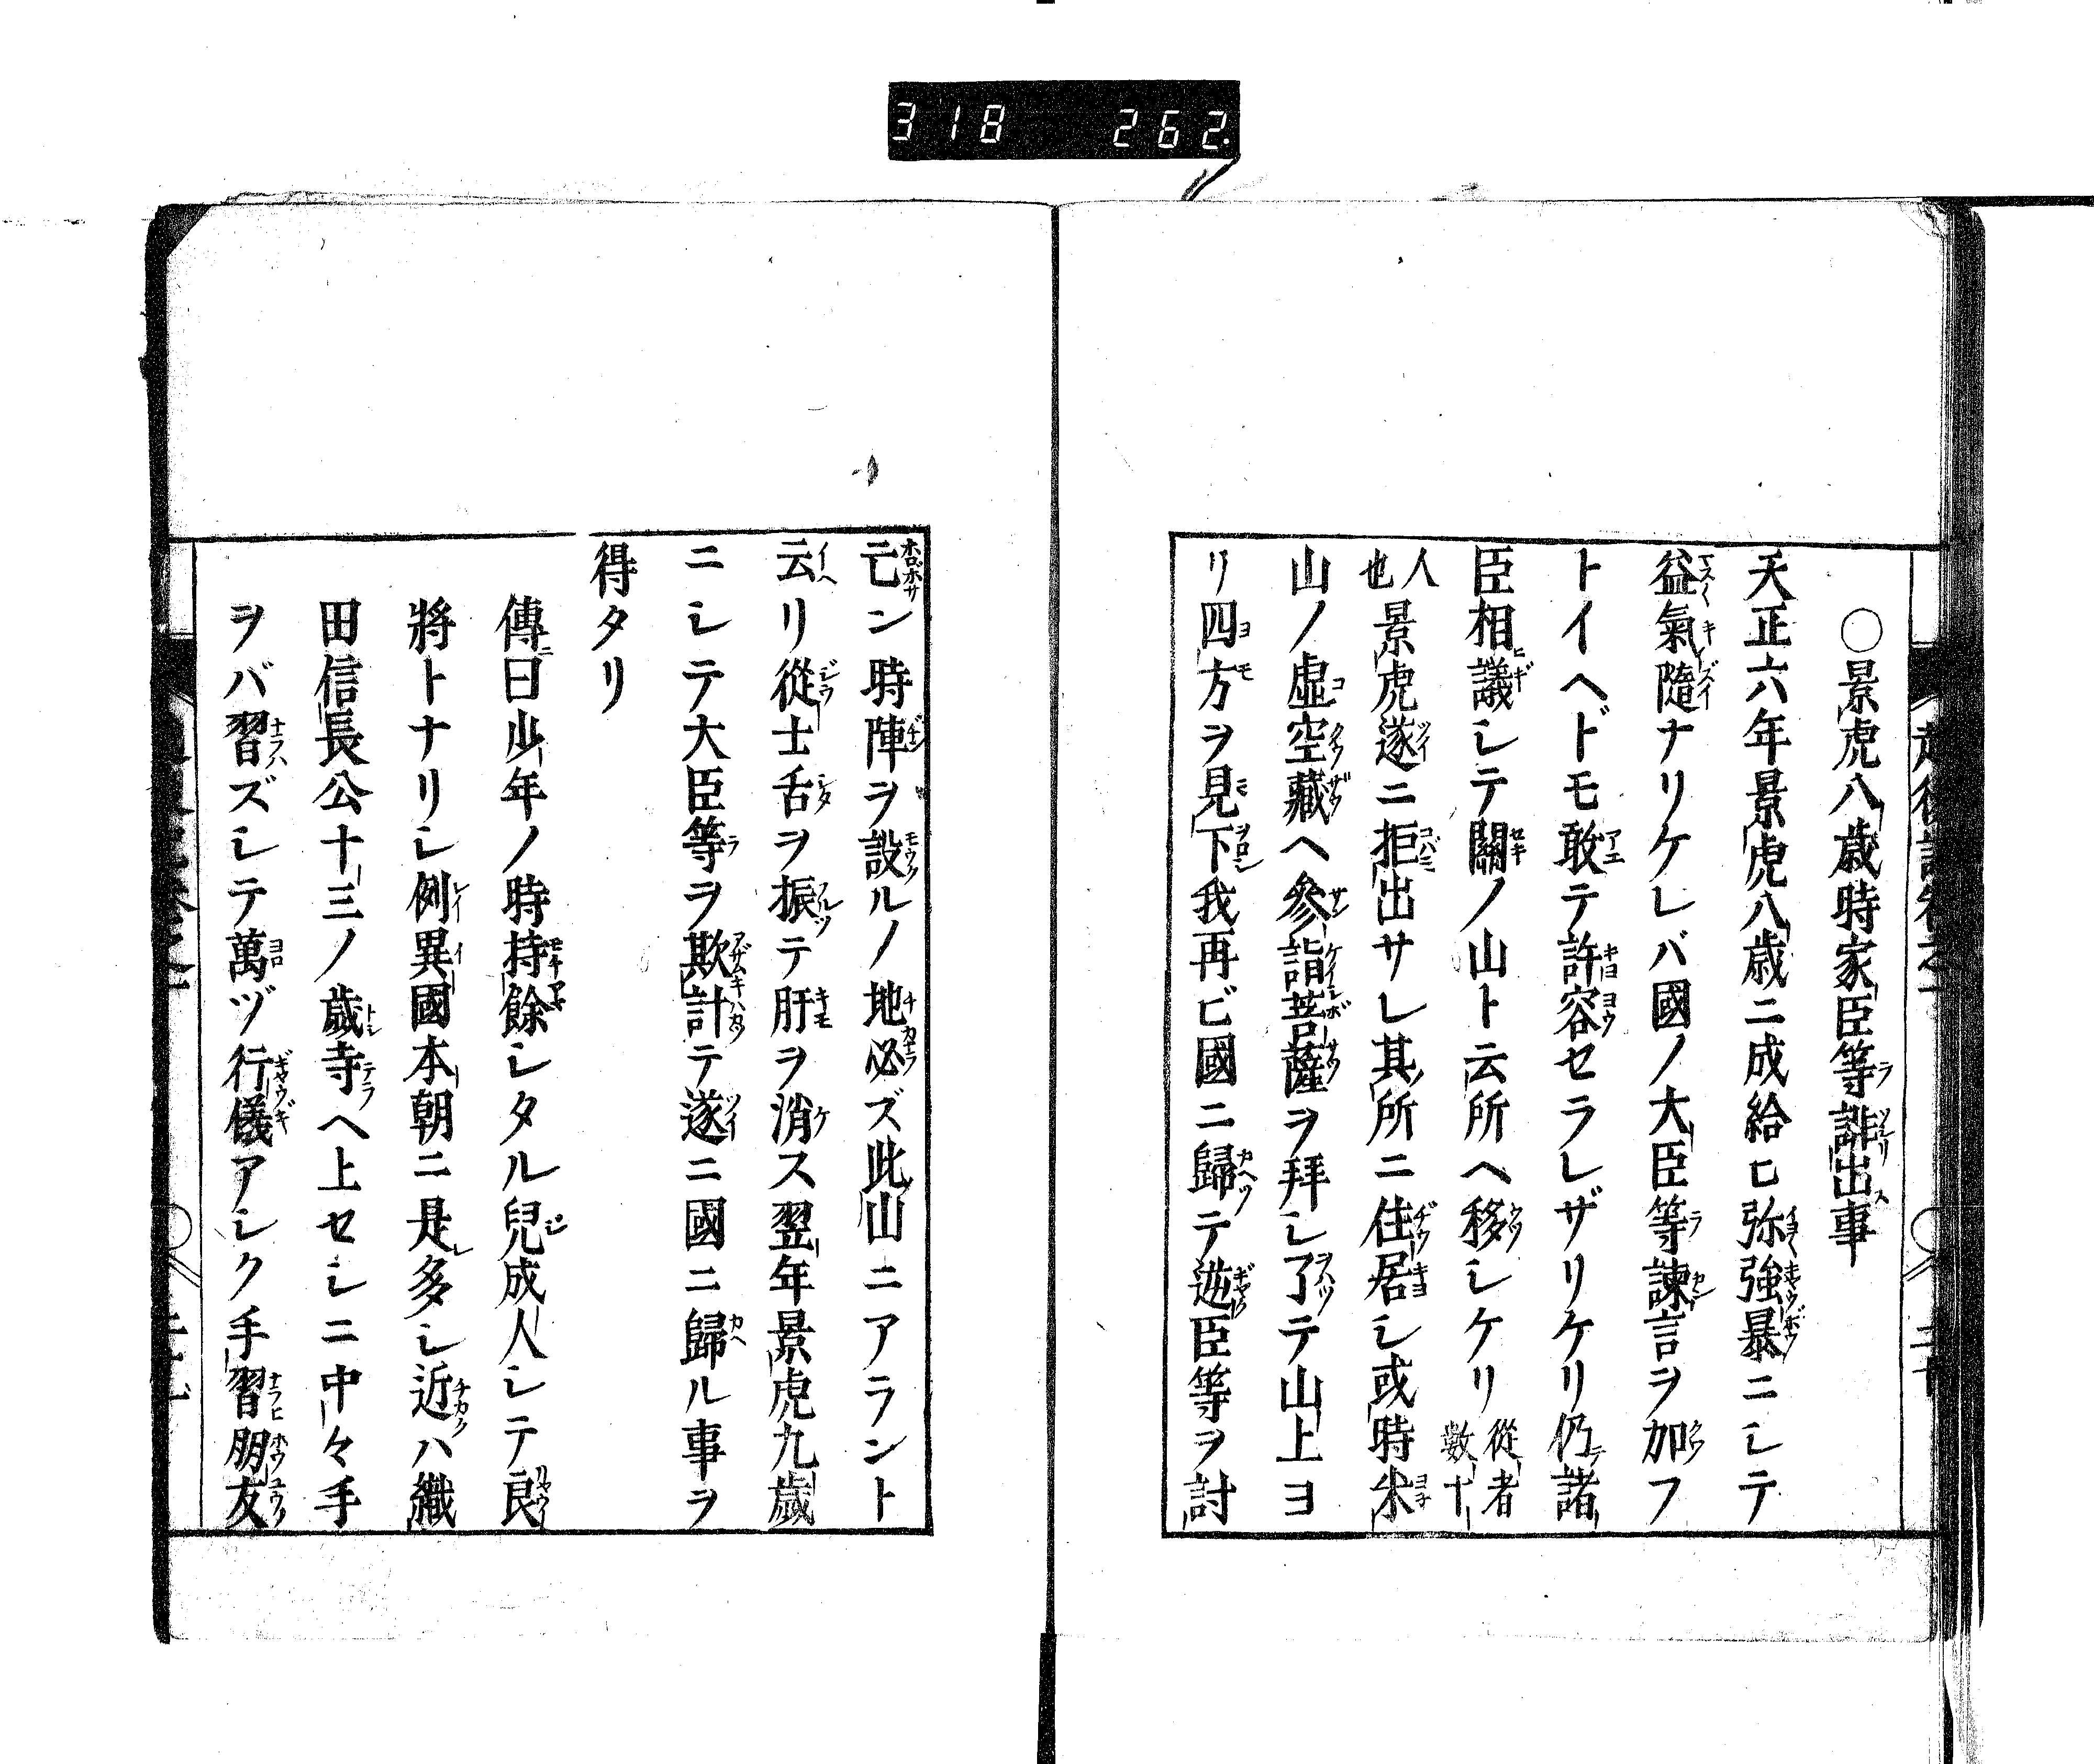 318 262.
○景虎八歳時家臣等誹出事
天正六年景虎八歳ニ成給ヒ弥強暴ニシテ
益氣隨ナリケレバ國ノ大臣等諫言ヲ加フ
トイヘドモ敢テ許容セラレザリケリ仍諸
臣相議シテ關ノ山ト云所ヘ移シケリ從者數十
人也景虎遂ニ拒出サレ其所ニ住居シ或時米
山ノ虚空藏ヘ参詣菩薩ヲ拜シ了テ山上ヨ
リ四方ヲ見下我再ビ國ニ歸テ逆臣等ヲ討
亡ン時陣ヲ設ルノ地必ズ此山ニアラント
云リ從士舌ヲ振テ肝ヲ消ス翌年景虎九歳
ニシテ大臣等ヲ欺計テ遂ニ國ニ歸ル事ヲ
得タリ
傳曰少年ノ時持餘シタル兒成人シテ良
將トナリシ例異國本朝ニ是多シ近ハ織
田信長公十三ノ歳寺ヘ上セシニ中々手
ヲバ習ズシテ萬ヅ行儀アシク手習朋友